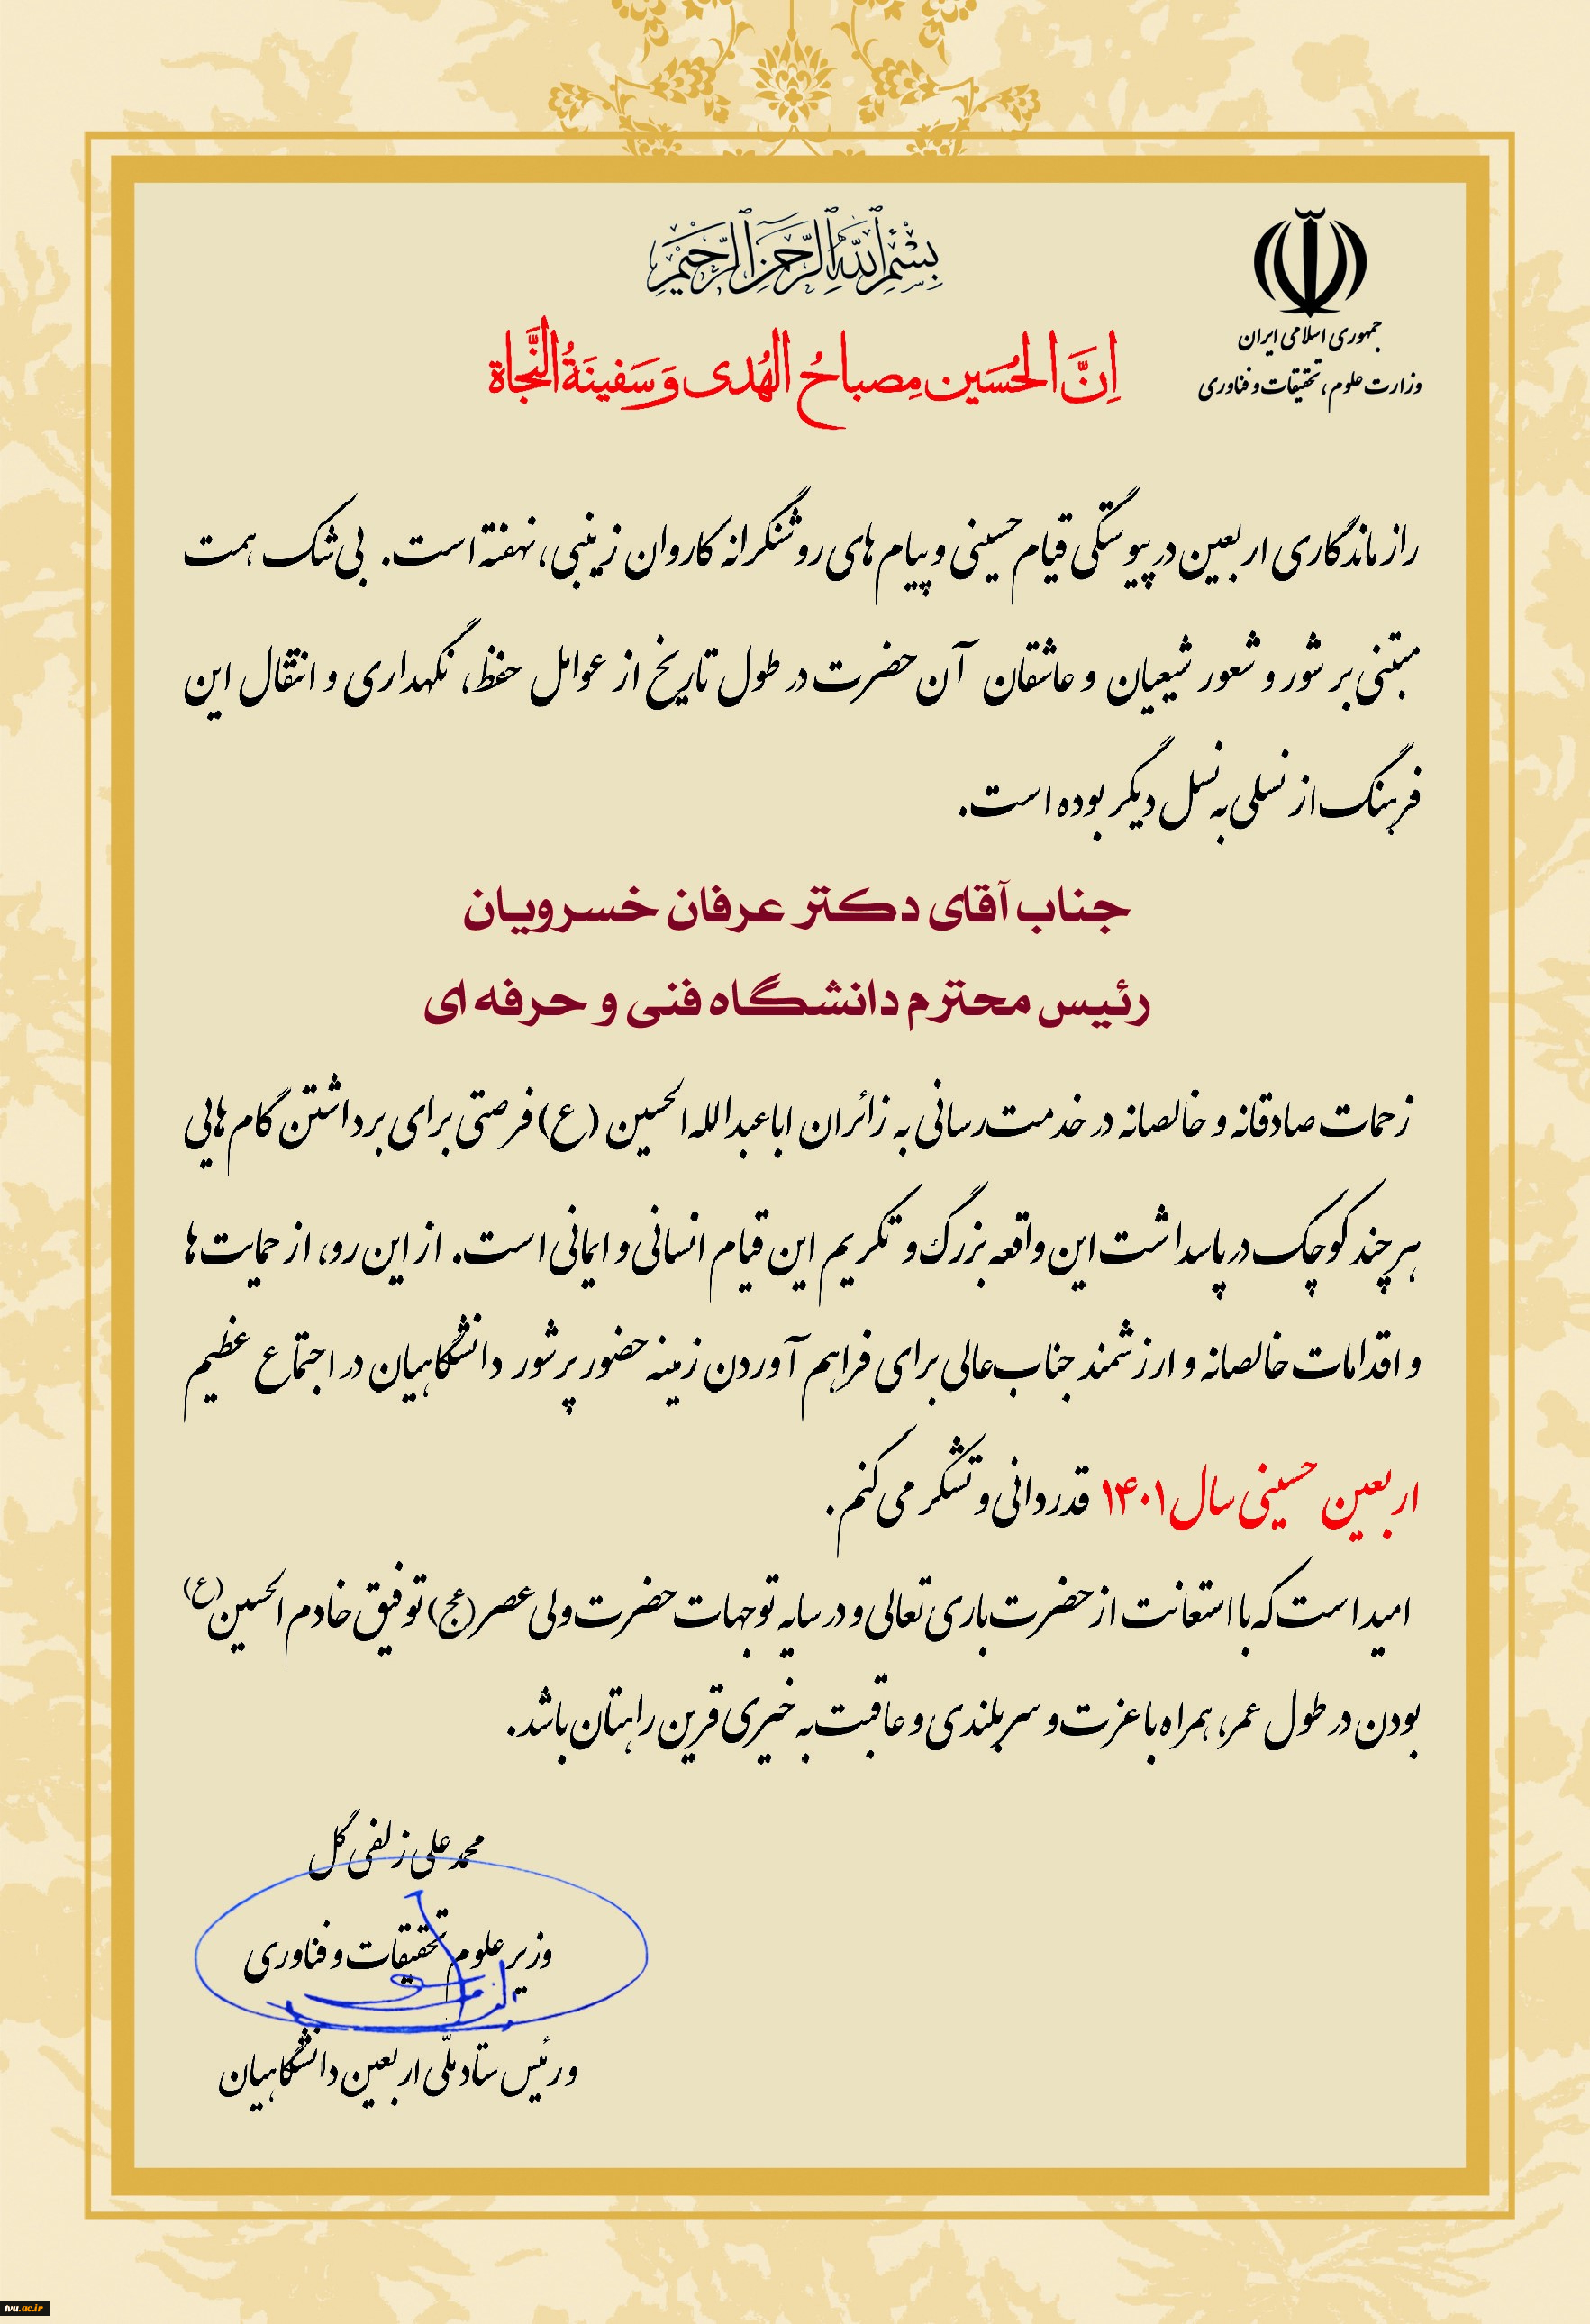 بِسْمِ اللَّهِ الرَّحْمَنِ الرَّحِيمِ
جمهوری اسلامی ایران
وزارت علوم، تحقیقات و فناوری
اِنَّ الحُسَین مِصباحُ الهُدی وَ سَفینَةُ النَّجاة
راز ماندگاری اربعین در پیوستگی قیام حسینی و پیام های روشنگرانه کاروان زینبی، نهفته است. بی شک همت
مبتنی بر شور و شعور شیعیان و عاشقان آن حضرت در طول تاریخ از عوامل حفظ، نگهداری و انتقال این
فرهنگ از نسلی به نسل دیگر بوده است.
جناب آقای دکتر عرفان خسرویان
رئیس محترم دانشگاه فنی و حرفه ای
زحمات صادقانه و خالصانه در خدمت رسانی به زائران اباعبدالله الحسین (ع) فرصتی برای برداشتن گام هایی
هر چند کوچک در پاسداشت این واقعه بزرگ و تکریم این قیام انسانی و ایمانی است. از این رو، از حمایت ها
و اقدامات خالصانه و ارزشمند جناب عالی برای فراهم آوردن زمینه حضور پرشور دانشگاهیان در اجتماع عظیم
اربعین حسینی سال ۱۴۰۱ قدردانی و تشکر می کنم.
امید است که با استعانت از حضرت باری تعالی و در سایه توجهات حضرت ولی عصر (عج) توفیق خادم الحسین (ع)
بودن در طول عمر، همراه با عزت و سربلندی و عاقبت به خیری قرین راهتان باشد.
محمد علی زلفی گل
وزیر علوم تحقیقات و فناوری
و رئیس ستاد ملّی اربعین دانشگاهیان
tvu.ac.ir